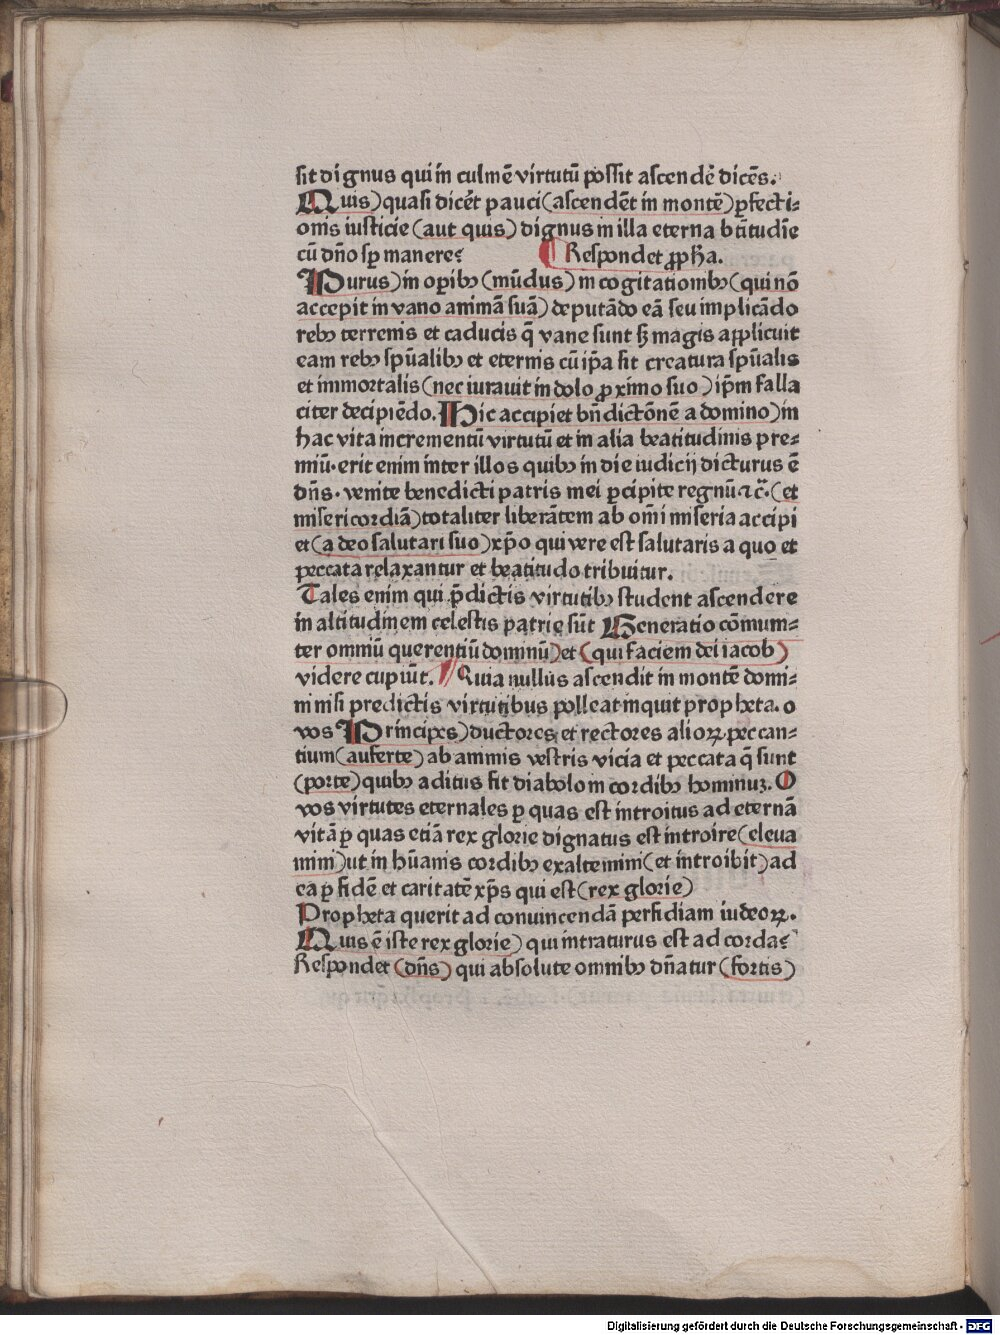 sit dignus qui in culmē virtutū possit ascendē dicēs.
Quis) quasi dicēt pauci (ascendēt in montē) ꝑfecti⸗
onis iusticie (aut quis) dignus in illa eterna btītudīe
cū dn̄o sꝑ manere? Respondet ꝓpħa.
Purus) in oꝑibꝫ (mūdus) in cogitationibꝫ (qui nō
accepit in vano animā suā) deputādo eā seu implicādo
rebꝫ terrenis et caducis q̄ vane sunt sꝫ magis applicuit
eam rebꝫ spūalibꝫ et eternis cū ip̄a sit creatura spūalis
et immortalis (nec iurauit in dolo ꝓximo suo) ip̄m falla
citer decipiēdo. Hic accipiet bn̄dictōnē a domino) in
hac vita incrementū virtutū et in alia beatitudinis pre⸗
miū. erit enim inter illos quibꝫ in die iudicij dicturus ē
dn̄s. venite benedicti patris mei ꝑcipite regnū ⁊c̄. (et
misericordiā) totaliter liberātem ab om̄i miseria accipi
et (a deo salutari suo) xp̄o qui vere est salutaris a quo et
peccata relaxantur et beatitudo tribuitur.
Tales enim qui p̄dictis virtutibꝫ student ascendere
in altitudinem celestis patrię sūt Generatio cōmum⸗
ter omniū querentiū dominū) et (qui faciem dei iacob)
videre cupiūt. Quia nullus ascendit in montē domi⸗
ni nisi predictis virtutibus polleat inquit propheta. o
vos Principes) ductores et rectores alioꝝ peccan⸗
tium (auferte) ab animis vestris vicia et peccata q̄ sunt
(porte) quibꝫ aditus fit diabolo in cordibꝫ hominuꝫ. O
vos virtutes eternales ꝑ quas est introitus ad eternā
vitā ꝑ quas etiā rex glorie dignatus est introire (eleua
mini) ut in hūanis cordibꝫ exaltemini (et introibit) ad
ea ꝑ fidē et caritatē xp̄s qui est (rex glorie)
Propheta querit ad conuincendā perfidiam iudeoꝝ.
Quis ē iste rex glorie) qui intraturus est ad corda?
Respondet (dn̄s) qui absolute omnibꝫ dn̄atur (fortis)
Digitalisierung gefördert durch die Deutsche Forschungsgemeinschaft - DFG